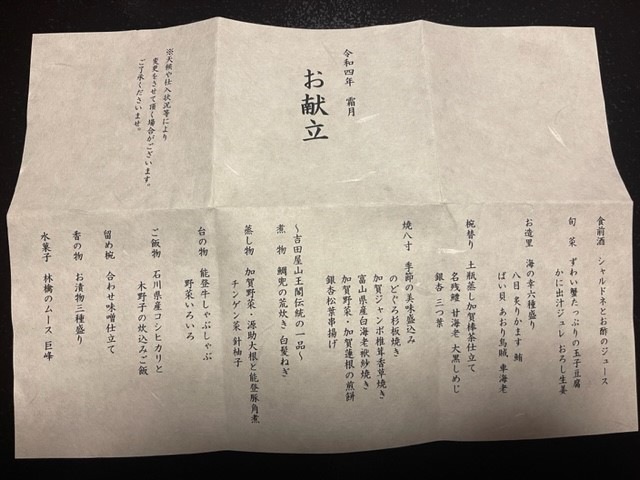 令和四年 霜月
お献立
※天候や仕入状況等により
変更をさせて頂く場合がございます。
ご了承くださいませ。
食前酒 シャルドネとお酢のジュース
旬菜 ずわい蟹たっぷりの玉子豆腐
かに出汁ジュレ おろし生姜
お造里 海の幸六種盛り
八目 炙りかます 鮪
ばい貝 あおり烏賊 車海老
椀替り 土瓶蒸し加賀棒茶仕立て
名残鱧 甘海老 大黒しめじ
銀杏 三つ葉
焼八寸 季節の美味盛込み
のどぐろ杉板焼き
加賀ジャンボ椎茸香草焼き
富山県産白海老袱紗焼き
加賀野菜・加賀蓮根の煎餅
銀杏松葉串揚げ
〜吉田屋山王閣伝統の一品〜
煮物 鯛兜の荒炊き 白髪ねぎ
蒸し物 加賀野菜・源助大根と能登豚角煮
チンゲン菜 針柚子
台の物 能登牛しゃぶしゃぶ
野菜いろいろ
ご飯物 石川県産コシヒカリと
木野子の炊込みご飯
留め椀 合わせ味噌仕立て
香の物 お漬物三種盛り
水菓子 林檎のムース 巨峰